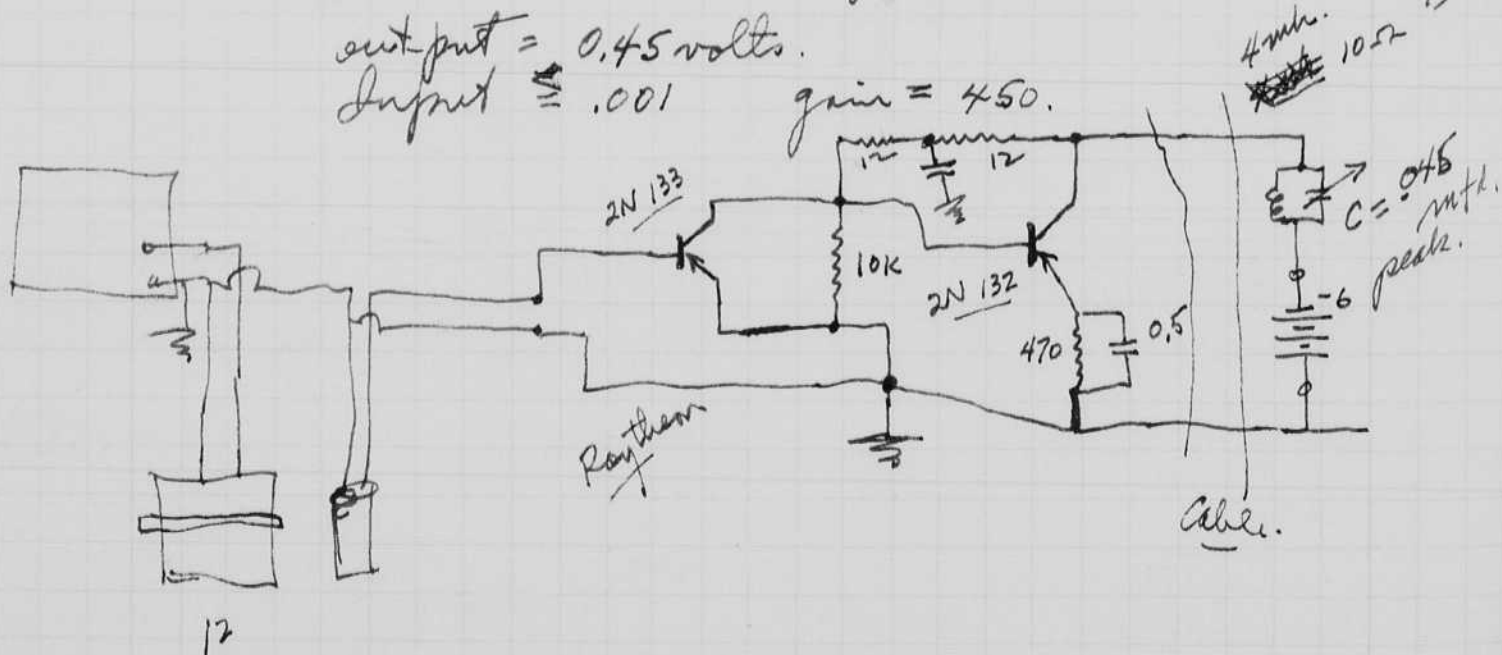 output = 0.45 volts.
Input ≅ .001 gain = 450.
4 mh.
10Ω
12 12
2N 133
10K
2N 132
470
0.5
C = .045 mfd.
peak.
-6
Raytheon
Cable.
12